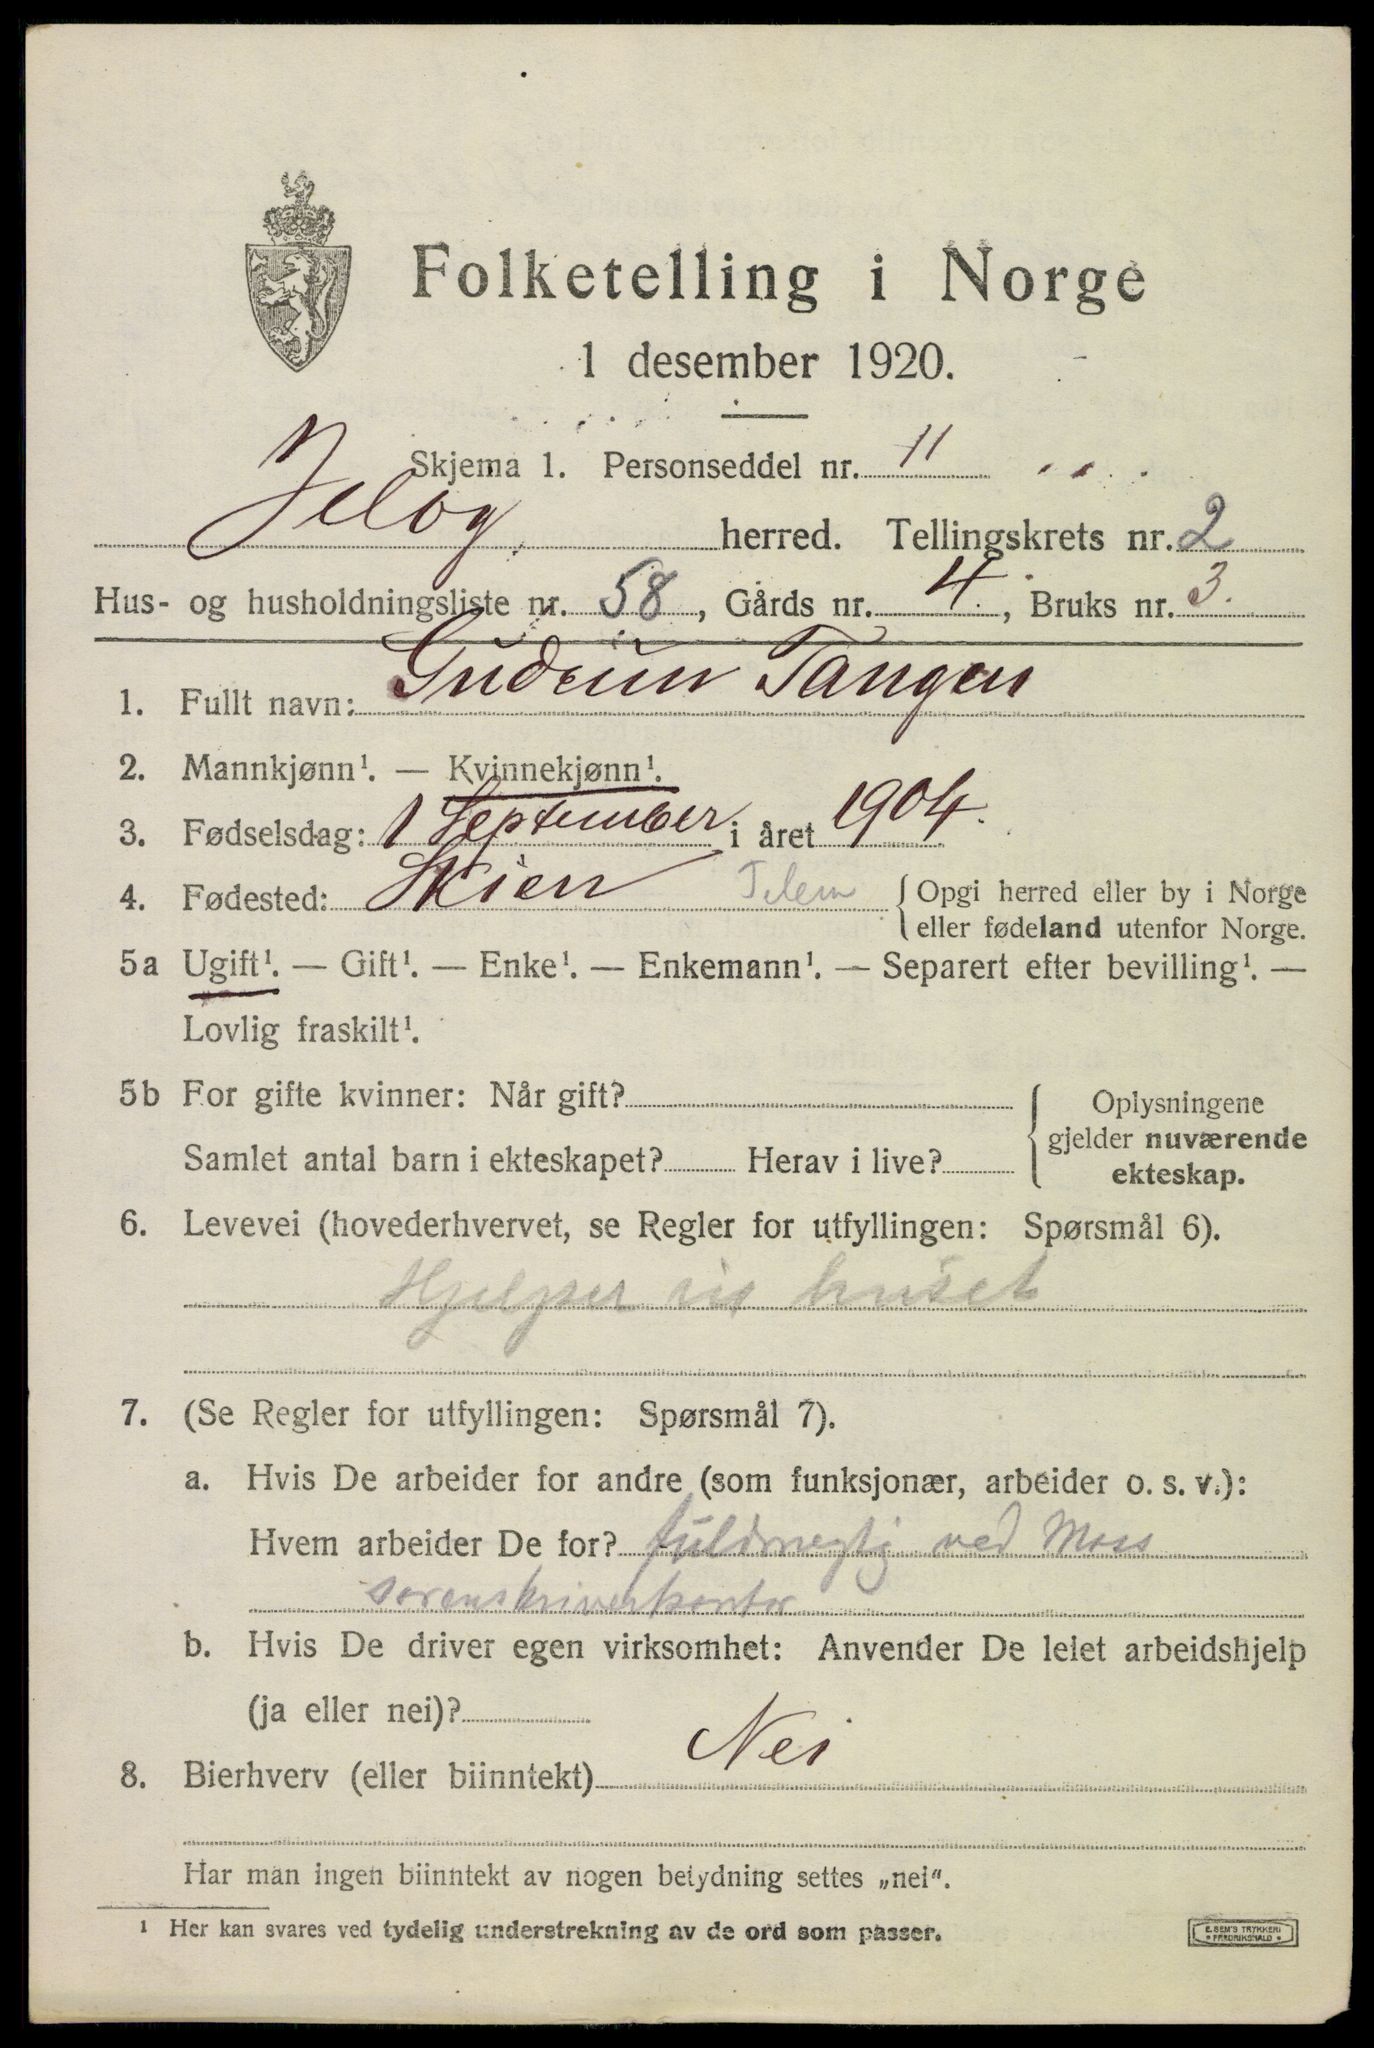 Folketelling i Norge
1 desember 1920.
Skjema 1. Personseddel nr. 11
Jeløy herred. Tellingskrets nr. 2
Hus- og husholdningsliste nr. 58, Gårds nr. 4., Bruks nr. 3.
1. Fullt navn: Gudrun Tangen
2. Mannkjønn¹. — Kvinnekjønn¹.
3. Fødselsdag: 1 September i året 1904.
4. Fødested: Skien Telem { Opgi herred eller by i Norge
eller fødeland utenfor Norge.
5a Ugift¹. — Gift¹. — Enke¹. — Enkemann¹. — Separert efter bevilling¹. —
Lovlig fraskilt¹.
5b For gifte kvinner: Når gift? { Oplysningene
gjelder nuværende
Samlet antal barn i ekteskapet? Herav i live?
ekteskap.
6. Levevei (hovederhvervet, se Regler for utfyllingen: Spørsmål 6).
Hjelper i huset
7. (Se Regler for utfyllingen: Spørsmål 7).
a. Hvis De arbeider for andre (som funksjonær, arbeider o. s. v.):
Hvem arbeider De for? fuldmegtig ved Moss
sorenskriverkontor
b. Hvis De driver egen virksomhet: Anvender De leiet arbeidshjelp
(ja eller nei)?
8. Bierhverv (eller biinntekt) Nei
Har man ingen biinntekt av nogen betydning settes „nei".
¹ Her kan svares ved tydelig understrekning av de ord som passer.
E. SEM'S TRYKKERI
FREDRIKSHALD